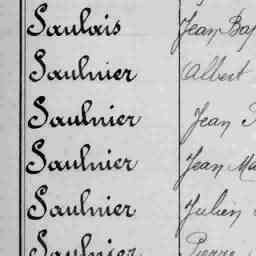 Saulais Jean Bap
Saulnier Albert
Saulnier Jean
Saulnier Jean Ma
Saulnier Julien
Saulnier Pierre